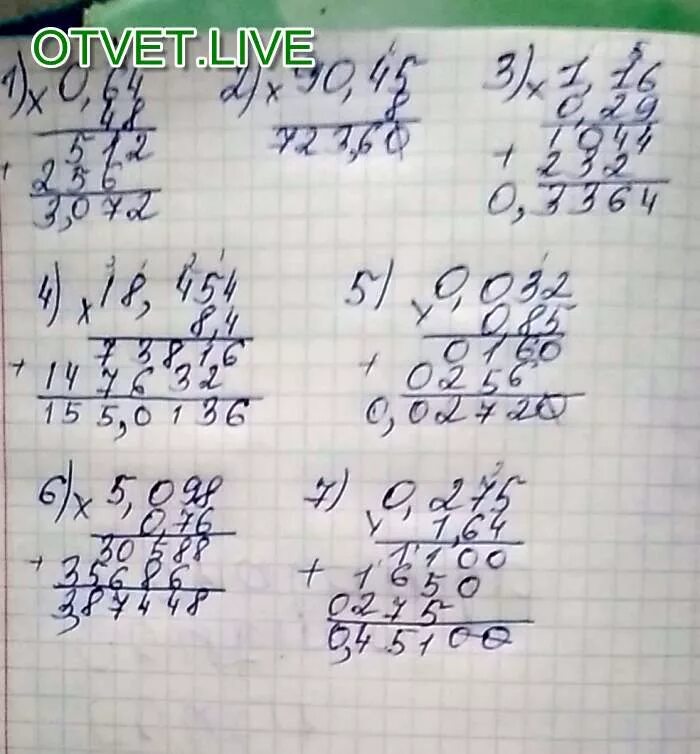 OTVET.LIVE
1) × 0,64
48
512
+ 256
3,072
2) × 90,45
8
723,60
3) × 1,16
0,29
1044
+ 232
0,3364
4) × 18,454
8,4
73816
+ 147632
155,0136
5) × 0,032
0,85
0160
+ 0256
0,02720
6) × 5,098
0,76
30588
+ 35686
3,87448
7) × 0,275
1,64
1100
+ 1650
0275
0,45100